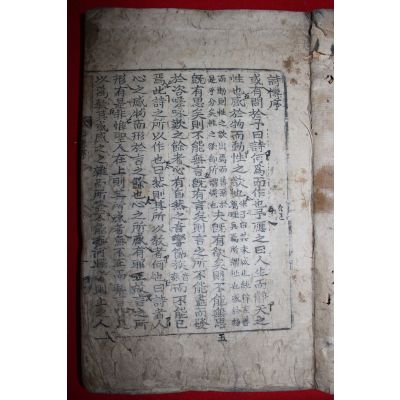 詩傳序
或有問於予曰詩何爲而作也予應之曰人生而靜天之
性也感於物而動性之欲也
夫旣有欲矣則不能無思
旣有思矣則不能無言旣有言矣則言之所不能盡而發
於咨嗟咏歎之餘者必有自然之音響節族而不能已
焉此詩之所以作也曰然則其所以敎者何也曰詩者人
心之感物而形於言之餘也心之所感有邪正故言之所
形有是非惟聖人在上則其所感者無不正而其言皆足
以爲敎其或感之之雜而所發不能無可擇者則上之人